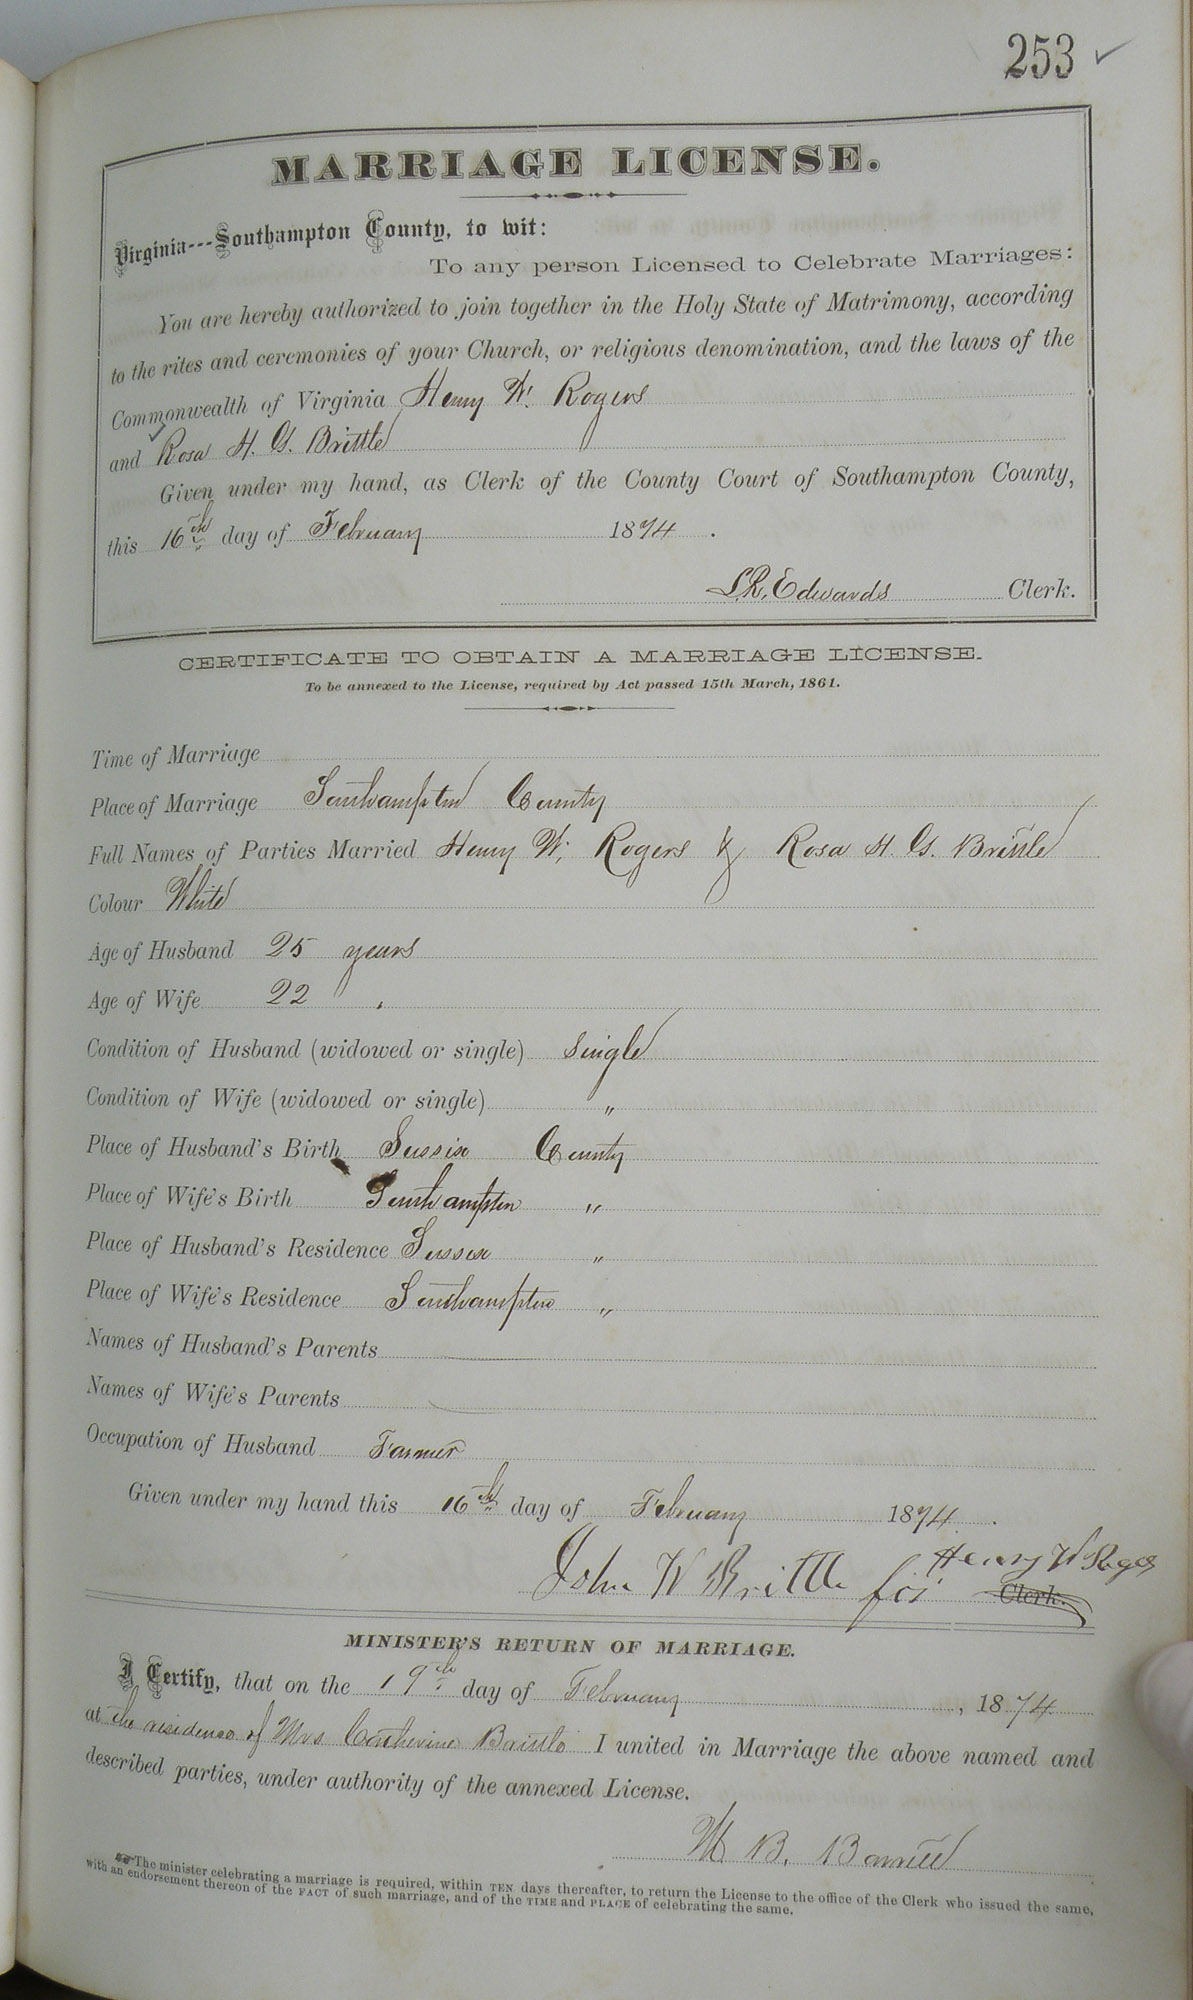 253 ✓
MARRIAGE LICENSE.
Virginia---Southampton County, to wit:
To any person Licensed to Celebrate Marriages:
You are hereby authorized to join together in the Holy State of Matrimony, according
to the rites and ceremonies of your Church, or religious denomination, and the laws of the
Commonwealth of Virginia Henry W. Rogers
and Rosa H. G. Brittle
Given under my hand, as Clerk of the County Court of Southampton County,
this 16th day of February 1874.
L.R. Edwards Clerk.
CERTIFICATE TO OBTAIN A MARRIAGE LICENSE.
To be annexed to the License, required by Act passed 15th March, 1861.
Time of Marriage
Place of Marriage Southampton County
Full Names of Parties Married Henry W. Rogers & Rosa H. G. Brittle
Colour White
Age of Husband 25 years
Age of Wife 22 "
Condition of Husband (widowed or single) Single
Condition of Wife (widowed or single) "
Place of Husband's Birth Sussex County
Place of Wife's Birth Southampton "
Place of Husband's Residence Sussex "
Place of Wife's Residence Southampton "
Names of Husband's Parents
Names of Wife's Parents
Occupation of Husband Farmer
Given under my hand this 16th day of February 1874.
John W Brittle for Henry W Rogers
Clerk.
MINISTER'S RETURN OF MARRIAGE.
I Certify, that on the 19th day of February, 1874
at the residence of Mrs Catherine Brittle I united in Marriage the above named and
described parties, under authority of the annexed License.
B.
The minister celebrating a marriage is required, within TEN days thereafter, to return the License to the office of the Clerk who issued the same,
with an endorsement thereon of the FACT of such marriage, and of the TIME and PLACE of celebrating the same.